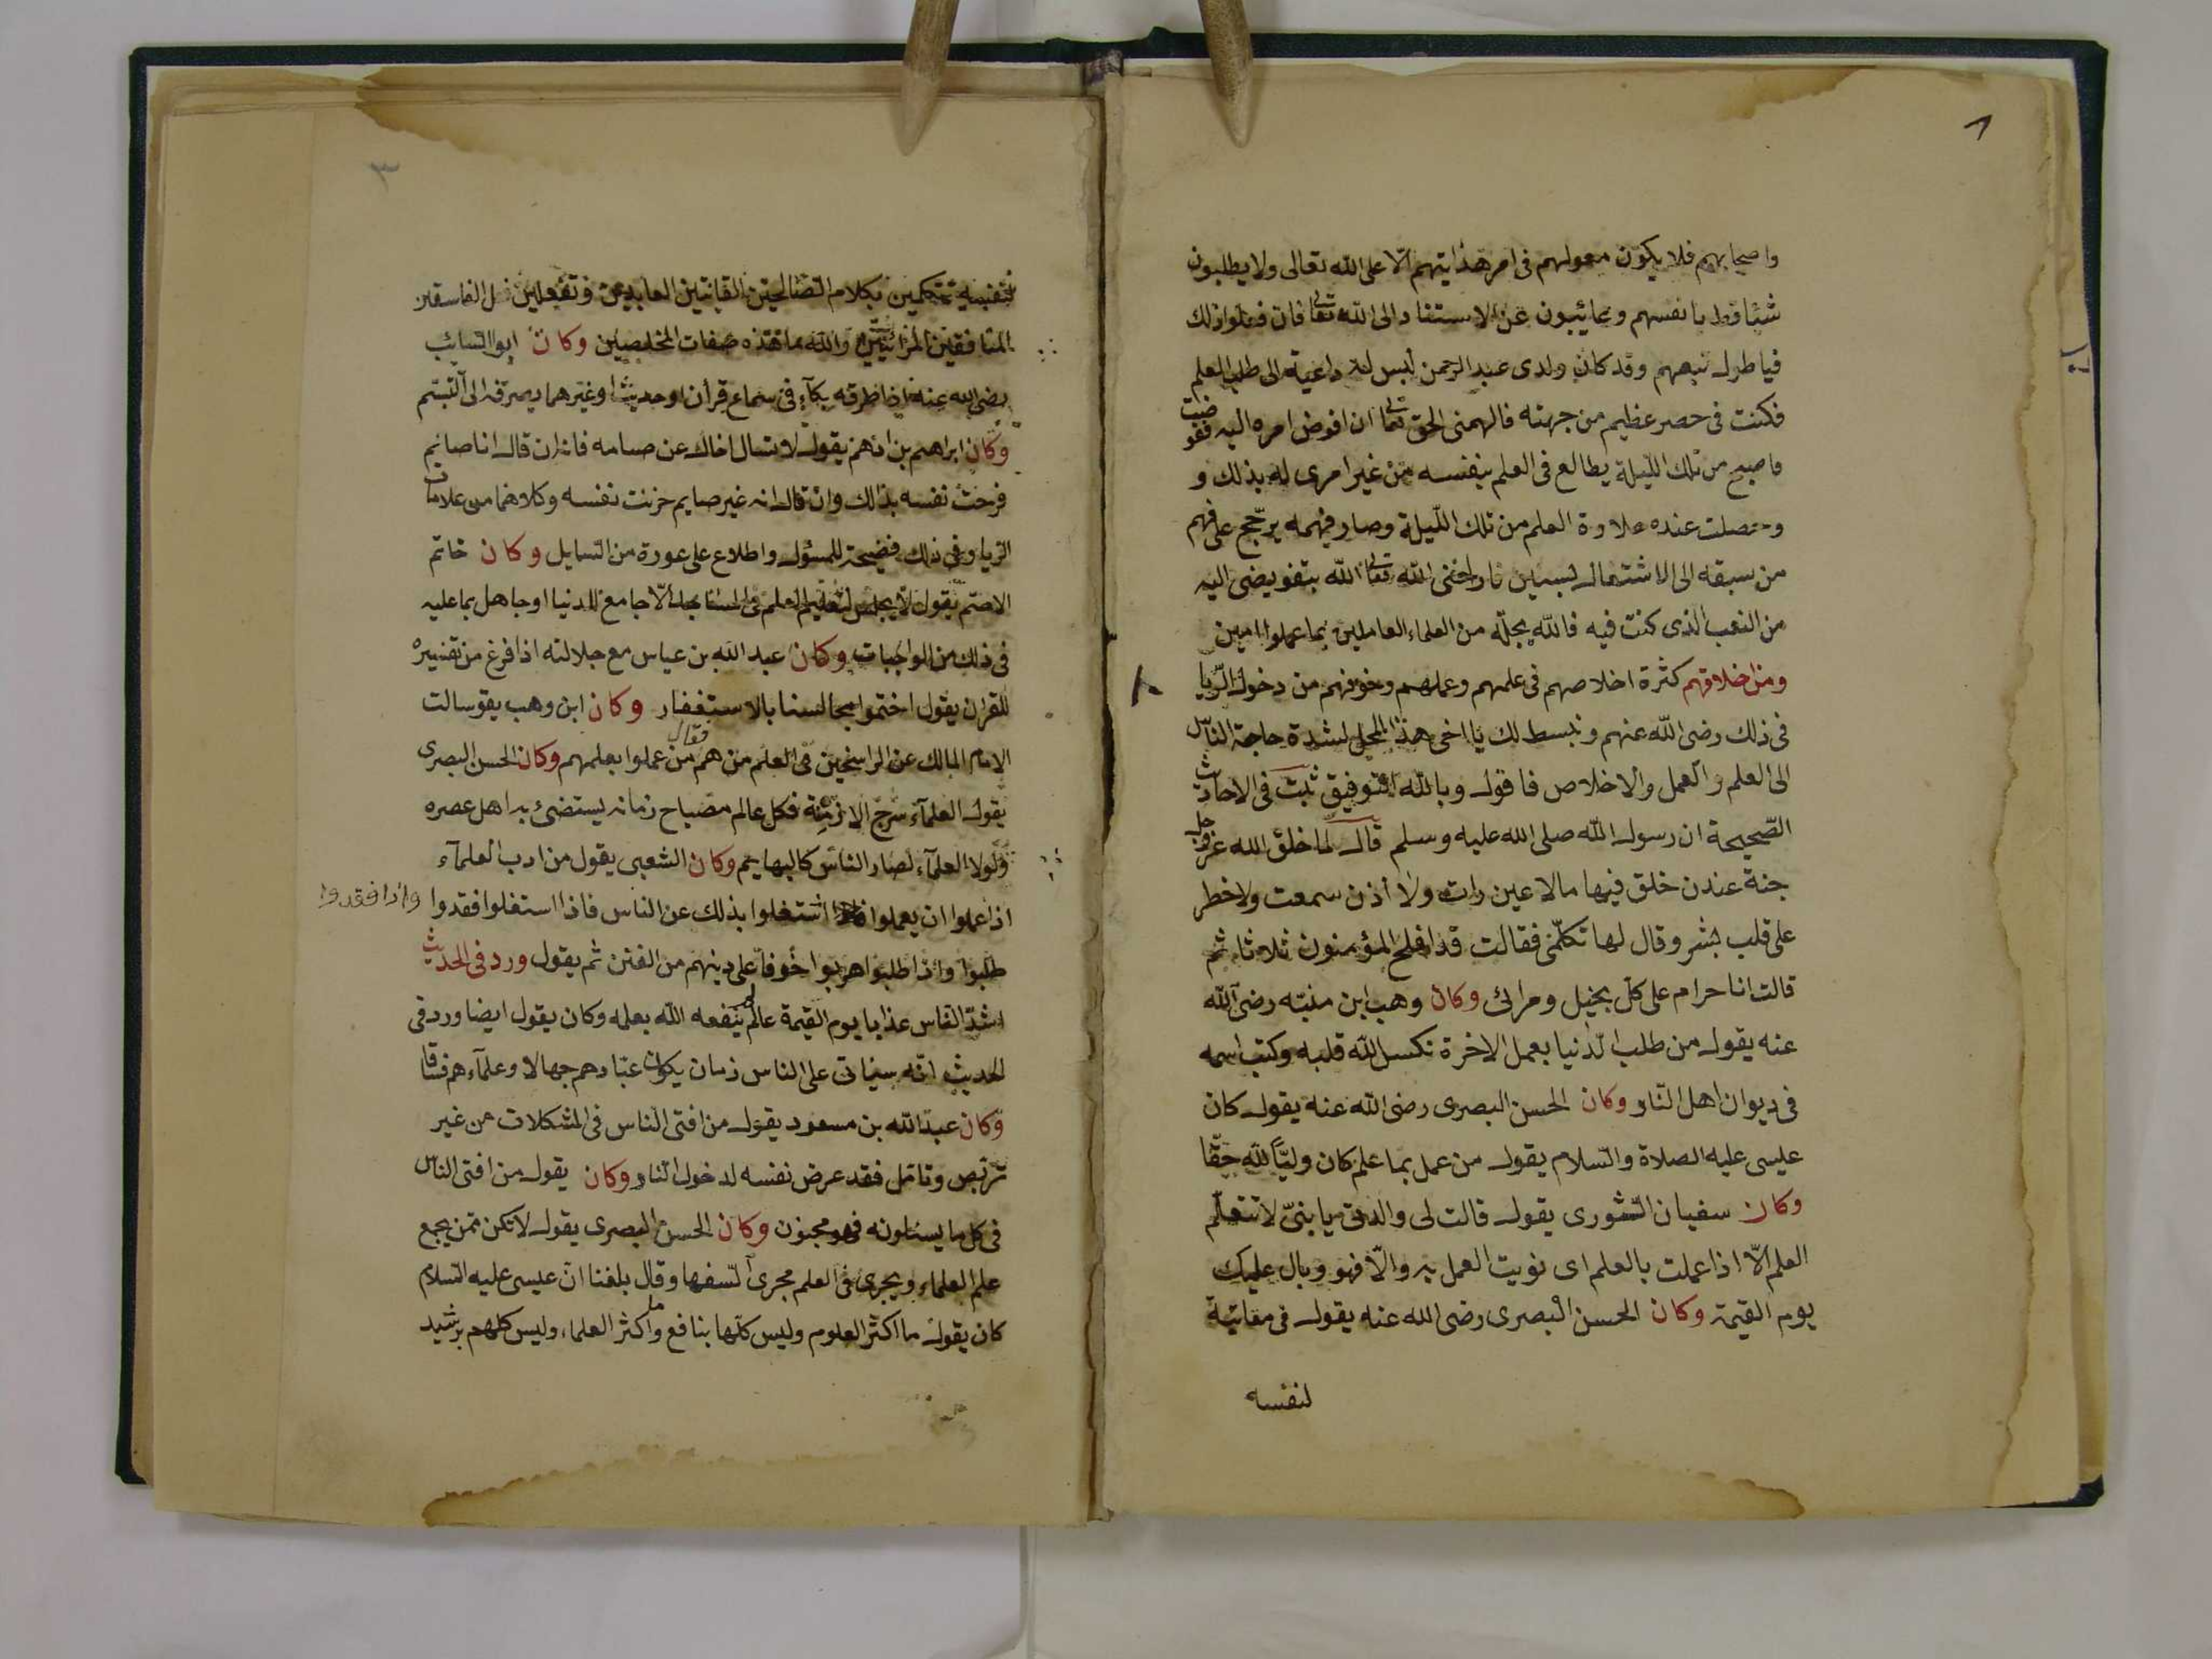 ٨
واصحابهم فلا يكون معولهم فى امر هدايتهم الّا على الله تعالى ولا يطلبون
شئا قط بانفسهم وغائبون عن الاستناد الى الله تعالى فان فعلوا ذلك
فيا طول تعبهم وقد كان ولدى عبد الرحمن ليس له داعية الى طلب العلم
فكنت فى حصر عظيم من جهته فالهمنى الحق تعالى ان افوض امره اليه ففوضت
فاصبح من تلك الليلة يطالع فى العلم بنفسه من غير امرى له بذلك و
وحصلت عنده حلاوة العلم من تلك اللّيلة وصار فهمه يرجّح على فهم
من سبقه الى الاشتغال بسنين فاراحنى الله تعالى الله بتفويضى اليه
من التعب الذى كنت فيه فالله يجعله من العلماء العاملين بما عملوا امين
ومن اخلاقهم كثرة اخلاصهم فى علمهم وعملهم وخوفهم من دخول الرّيا
فى ذلك رضى الله عنهم ونبسط لك يا اخى هذا المحل لشدة حاجة النّاس
الى العلم والعمل والاخلاص فاقول وبالله التوفيق ثبت فى الاحاديث
الصّحيحة ان رسول الله صلى الله عليه وسلم قال لما خلق الله عزوجل
جنة عندن خلق فيها مالا عين رات ولا أذن سمعت ولا خطر
على قلب بشر وقال لها تكلّمى فقالت قد افلح المؤمنون ثلاثا ثم
قالت انا حرام على كل بخيل ومرائ وكان وهب ابن منبّه رضى الله
عنه يقول من طلب الدّنيا بعمل الاخرة نكس الله قلبه وكتب اسمه
فى ديوان اهل النّار وكان الحسن البصرى رضى الله عنه يقول كان
عيسى عليه الصلاة والسّلام يقول من عمل بما علم كان وليّا لله حقّا
وكان سفيان الثّورى يقول قالت لى والدتى يا بنىّ لا تتعلّم
العلم الّا اذا عملت بالعلم اى نويت العمل به والّا فهو وبال عليك
يوم القيمة وكان الحسن البصرى رضى الله عنه يقول فى معاتبة
لنفسه
٣
لنفسه تتكلمين بكلام الصّالحين القانتين العابدين وتفعلين فعل الفاسقين
المنافقين المرائيين والله ما هذه صفات المخلصين وكان ابو السّائب
رضى الله عنه اذا طرقه بكآء فى سماع قرأن او حديث او غيرهما يصرفه الى التّبسّم
وكان ابراهيم بن ادهم يقول لا تسال اخاك عن صيامه فانه ان قال انا صايم
فرحت نفسه بذالك وان قال انه غير صايم حزنت نفسه وكلاهما من علامات
الريا وفى ذلك فضيحة للمسئول واطلاع على عورة من السايل وكان حاتم
الاصمّ يقول لا يجلس لتعليم العلم فى المساجد الّا جامع للدنيا او جاهل بما عليه
فى ذلك من الواجبات وكان عبد الله بن عباس مع جلالته اذا فرغ من تفسيره
للقران يقول اختموا مجالسنا بالاستغفار وكان ابن وهب يقو سالت
الامام المالك عن الراسخين فى العلم من هم فقال من عملوا بعلمهم وكان الحسن البصرى
يقول العلمآء سرج الازمنة فكل عالم مصباح زمانه يستضئ به اهل عصره
ولولا العلمآء لصار النّاس كالبهايم وكان الشعبى يقول من ادب العلمآء
اذا علموا ان يعملوا اشتغلوا بذلك عن الناس فاذا استغلوا فقدوا واذا فقدوا
طلبوا واذا طلبوا هربوا خوفا على دينهم من الفتن ثم يقول ورد فى الحديث
اشدّ الناس عذابا يوم القيمة عالم لم ينفعه الله بعلمه وكان يقول ايضا ورد فى
الحديث انّه سيأتى على الناس زمان يكون عبّادهم جهالا وعلمآءهم فسّاقا
وكان عبد الله بن مسعود يقول من افتى النّاس فى المشكلات من غير
تربّص وتامل فقد عرض نفسه لدخول النّار وكان يقول من افتى النّاس
فى كل ما يسئلونه فهو مجنون وكان الحسن البصرى يقول لا تكن ممّن يجمع
علم العلماء ويجرى فى العلم مجرى السفها وقال بلغنا انّ عيسى عليه السّلام
كان يقول ما اكثر العلوم وليس كلّها بنافع وما اكثر العلماء وليس كلهم برشيد